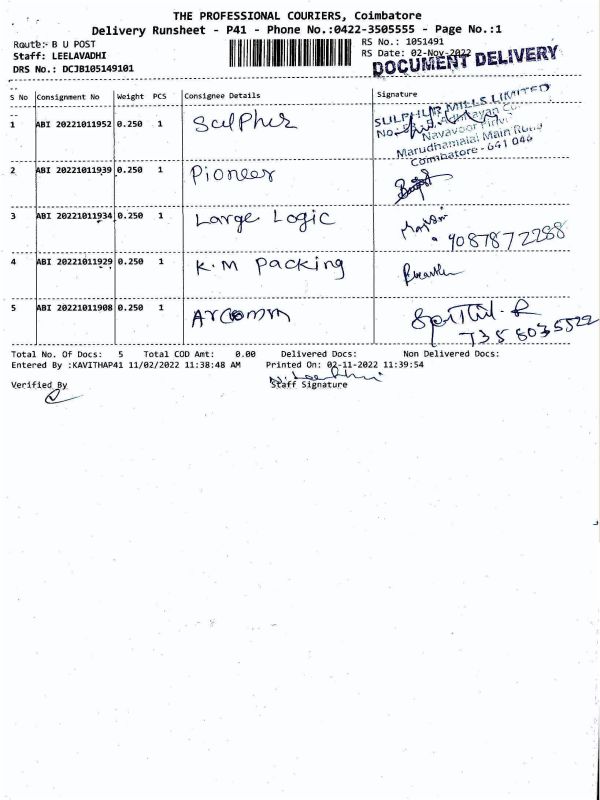 THE PROFESSIONAL COURIERS, Coimbatore
Delivery Runsheet - P41 - Phone No.:0422-3505555 - Page No.:1
Route:- B U POST
RS No.: 1051491
Staff: LEELAVADHI
RS Date: 02-Nov-2022
DRS No.: DCJB105149101
DOCUMENT DELIVERY
S No Consignment No Weight PCS Consignee Details Signature
1 ABI 20221011952 0.250 1 Sulpher
SULPHUR MILLS LIMITED
No.
Navavoor Pirivu
Marudhamalai Main Road
Coimbatore - 641 046
2 ABI 20221011939 0.250 1 Pioneer
3 ABI 20221011934 0.250 1 Large Logic
9087872288
4 ABI 20221011929 0.250 1 K.M Packing
5 ABI 20221011908 0.250 1 Arcomm
7358035522
Total No. Of Docs: 5 Total COD Amt: 0.00 Delivered Docs: Non Delivered Docs:
Entered By :KAVITHAP41 11/02/2022 11:38:48 AM Printed On: 02-11-2022 11:39:54
Verified By Staff Signature